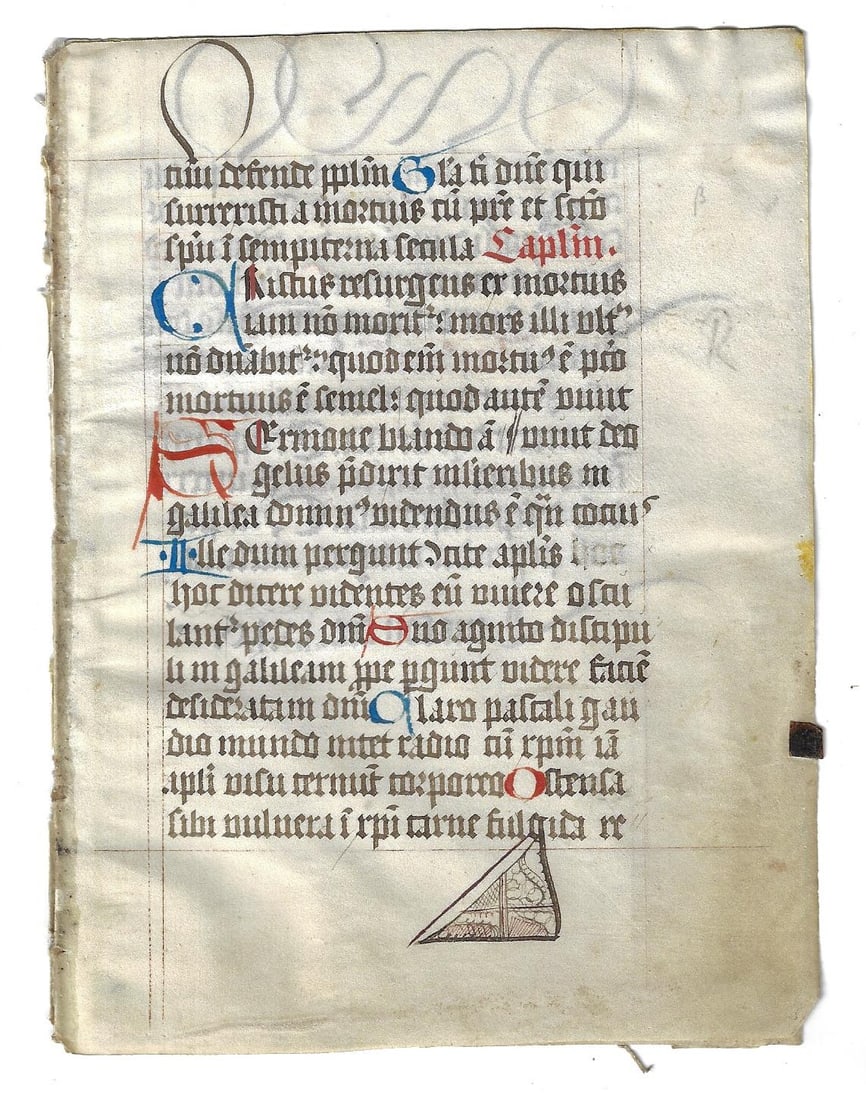 tuū defende pplm̄ Gl'a ti dn̄e qui
surrexisti a mortuis cū pr̄e et sc̄to
spū ī sempiterna secula Caplm̄.
Christus resurgens ex mortuis
iam nō morit᷑: mors illi vlt᷑
nō dn̄abit᷑: quod em̄ mortuꝰ ē pc̄o
mortuus ē semel: quod autē viuit
SErmone blando ā // viuit deo
gelus p̄dixit mlieribus in
galilea domnꝰ videndus ē qn̄ tociuꝰ
Ille dum pergunt ↄcite aplis hoc
hoc dicere videntes eū viuere oscu
lant᷑ pedes dn̄i Quo agnito discipu
li in galileam ꝓpe ꝑgunt videre faciē
desideratam dn̄i Claro pascali gau
dio mundo nitet radio cū xpm̄ iā
apli visu cernūt corporeo Ostensa
sibi vulnera ī xpī carne fulgida re